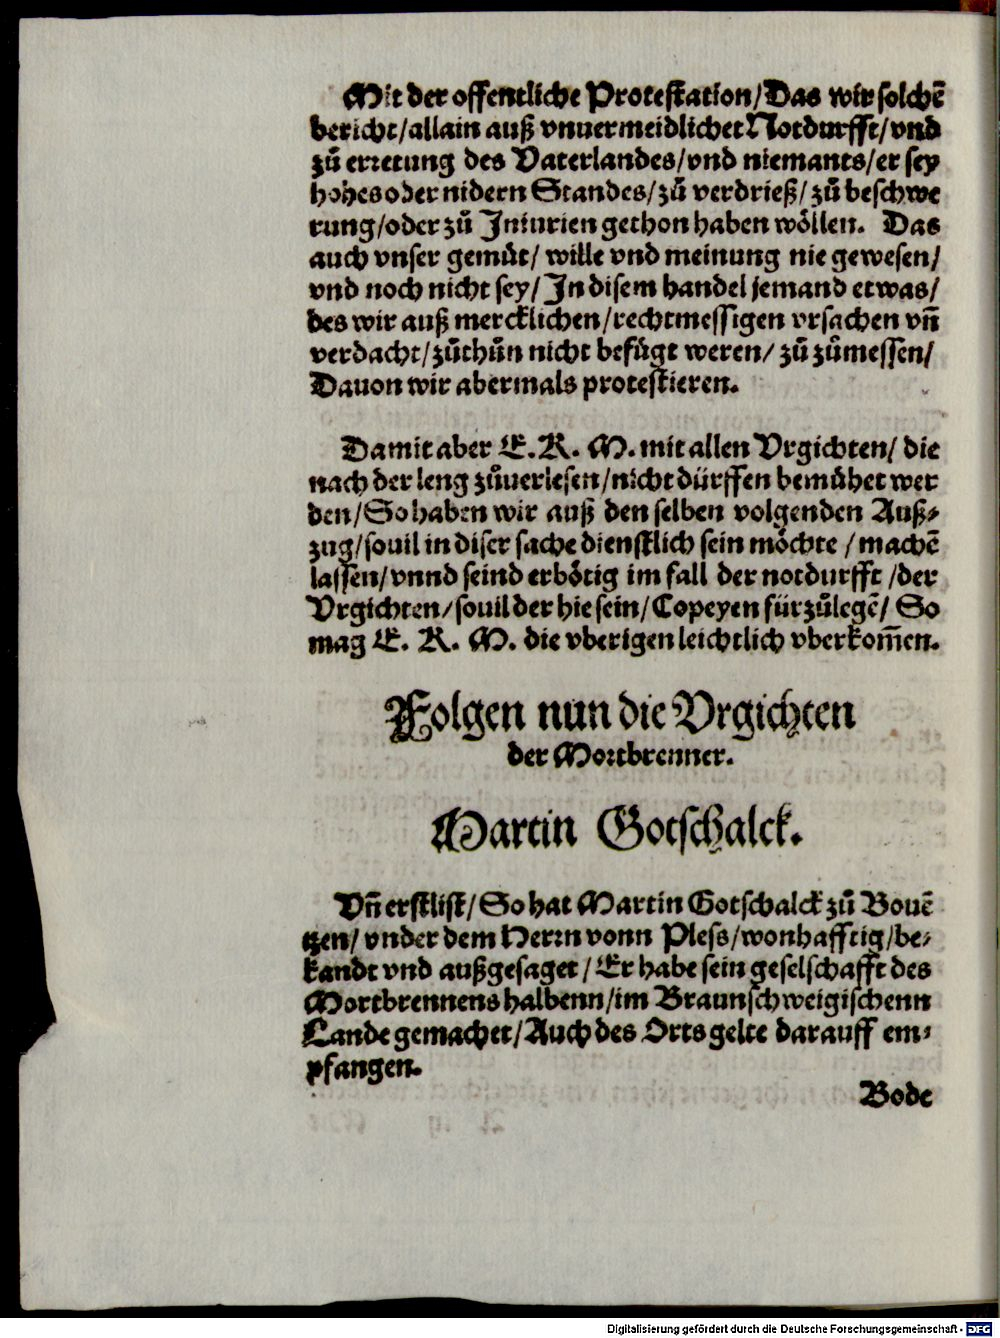 Mit der offentliche Protestation/Das wir solchē
bericht/allain auß vnuermeidlicher Notdurfft/vnd
zů erretung des Vaterlandes/vnd niemants/er sey
hohes oder nidern Standes/zů verdrieß/zů beschwe
rung/oder zů Iniurien gethon haben wöllen. Das
auch vnser gemüt/ wille vnd meinung nie gewesen/
vnd noch nicht sey/ In disem handel jemand etwas/
des wir auß mercklichen/rechtmessigen vrsachen vñ
verdacht/zůthůn nicht befůgt weren/ zů zůmessen/
Dauon wir abermals protestieren.
Damit aber E. K. M. mit allen Vrgichten/ die
nach der leng zůuerlesen/nicht dürffen bemühet wer
den/So haben wir auß den selben volgenden Auß-
zug/souil in diser sache dienstlich sein möchte /machē
lassen/vnnd seind erbötig im fall der notdurfft /der
Vrgichten/souil der hie sein/Copeyen fürzůlegē/ So
mag E. K. M. die vberigen leichtlich vberkom̄en.
Folgen nun die Vrgichten
der Mortbrenner.
Martin Gotschalck.
Vñ erstlist/So hat Martin Gotschalck zů Bouē
tzen/ vnder dem Herrn vonn Pless/wonhafftig/be-
kandt vnd außgesaget/Er habe sein geselschafft des
Mortbrennens halbenn/im Braunschweigischenn
Lande gemachet/Auch des Orts gelte darauff em-
pfangen.
Bode
Digitalisierung gefördert durch die Deutsche Forschungsgemeinschaft - DFG